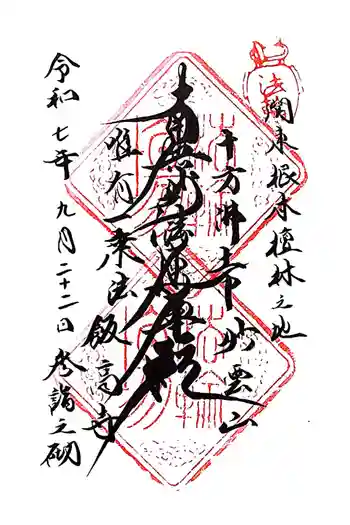 関東根本檀林之地
十方佛土中 妙雲山
南無妙法蓮華経
唯有一乗法 飯高寺
令和七年九月二十二日 参詣之砌